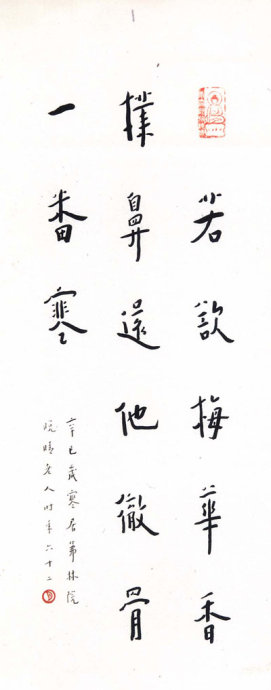 若欲梅華香
撲鼻還他徹骨
一番寒
辛巳歲寒居茀林院
晚晴老人時年六十二